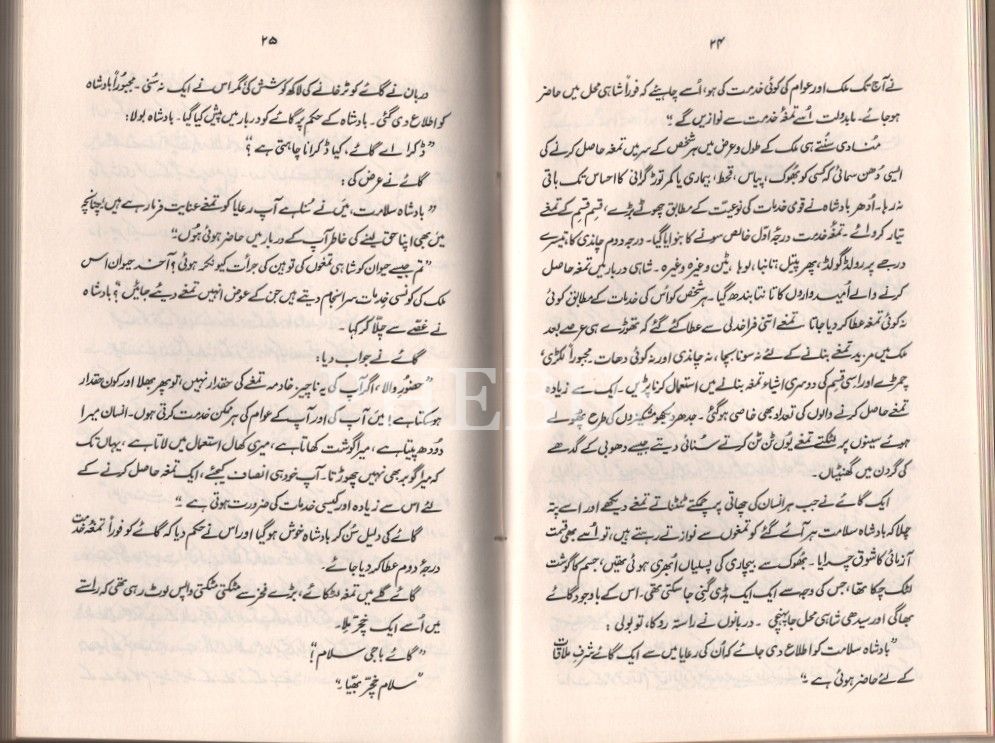 ۲۴
نے آج تک ملک اور عوام کی کوئی خدمت کی ہو، اُسے چاہیئے کہ فوراً شاہی محل میں حاضر
ہو جائے۔ مابدولت اُسے تمغۂ خدمت سے نوازیں گے۔"
مُنادی سُنتے ہی ملک کے طول و عرض میں ہر شخص کے سر میں تمغہ حاصل کرنے کی
ایسی دُھن سمائی کہ کسی کو بُھوک، پیاس، قحط، بیماری یا کمر توڑ گرانی کا احساس تک باقی
نہ رہا۔ اُدھر بادشاہ نے قومی خدمات کی نوعیّت کے مطابق چھوٹے بڑے، قسم قسم کے تمغے
تیار کروائے۔ تمغۂ خدمت درجۂ اوّل خالص سونے کا بنوایا گیا۔ درجہ دوم چاندی کا، تیسرے
درجے پر رولڈ گولڈ، پھر پیتل، تانبا، لوہا، ٹین وغیرہ وغیرہ۔ شاہی دربار میں تمغہ حاصل
کرنے والے اُمیدواروں کا تانتا بندھ گیا۔ ہر شخص کو اس کی خدمات کے مطابق کوئی
نہ کوئی تمغہ عطا کر دیا جاتا۔ تمغے اتنی فراخدلی سے عطا کئے گئے کہ تھوڑے ہی عرصے بعد
ملک میں مزید تمغے بنانے کے لئے نہ سونا بچا، نہ چاندی اور نہ کوئی دھات۔ مجبوراً لکڑی،
چمڑے اور اسی قسم کی دوسری اشیاء تمغہ بنانے میں استعمال کرنا پڑیں۔ ایک سے زیادہ
تمغے حاصل کرنے والوں کی تعداد بھی خاصی ہو گئی۔ جدھر دیکھو مشکیزوں کی طرح پھولے
ہوئے سینوں پر لٹکتے تمغے یُوں ٹن ٹن کرتے سُنائی دیتے جیسے دھوبی کے گدھے
کی گردن میں گھنٹیاں۔
ایک گائے نے جب ہر انسان کی چھاتی پر چمکتے ٹنٹناتے تمغے دیکھے اور اسے پتہ
چلا کہ بادشاہ سلامت ہر آئے گئے کو تمغوں سے نوازتے رہتے ہیں، تو اُسے بھی قسمت
آزمائی کا شوق چرایا۔ بُھوک سے بیچاری کی پسلیاں اُبھری ہوئی تھیں، جسم کا گوشت
لٹک چکا تھا، جس کی وجہ سے ایک ایک ہڈی گنی جا سکتی تھی۔ اس کے باوجود گائے
بھاگی اور سیدھی شاہی محل جا پہنچی۔ دربانوں نے راستہ روکا، تو بولی:
"بادشاہ سلامت کو اطلاع دی جائے کہ اُن کی رعایا میں سے ایک گائے شرفِ ملاقات
کے لئے حاضر ہوئی ہے۔"
۲۵
دربان نے گائے کو ٹرخانے کی لاکھ کوشش کی مگر اس نے ایک نہ سُنی۔ مجبُوراً بادشاہ
کو اطلاع دی گئی۔ بادشاہ کے حکم پر گائے کو دربار میں پیش کیا گیا۔ بادشاہ بولا:
"ڈکرا اے گائے، کیا ڈکرانا چاہتی ہے؟"
گائے نے عرض کی:
"بادشاہ سلامت، مَیں نے سُنا ہے آپ رعایا کو تمغے عنایت فرما رہے ہیں چُنانچہ
مَیں بھی اپنا حق لینے کی خاطر آپ کے دربار میں حاضر ہوئی ہُوں۔"
"تم جیسے حیوان کو شاہی تمغوں کی توہین کی جرأت کیونکر ہوئی؟ آخر حیوان اس
ملک کی کونسی خدمات سرانجام دیتے ہیں جن کے عوض انہیں تمغے دیئے جائیں؟" بادشاہ
نے غصّے سے چلّا کر کہا۔
گائے نے جواب دیا:
"حضورِ والا، اگر آپ کی یہ ناچیز خادمہ تمغے کی حقدار نہیں، تو پھر بھلا اور کون حقدار
ہو سکتا ہے؟ میں آپ کی اور آپ کے عوام کی ہر ممکن خدمت کرتی ہوں۔ انسان میرا
دُودھ پیتا ہے، میرا گوشت کھاتا ہے، میری کھال استعمال میں لاتا ہے، یہاں تک
کہ میرا گوبر بھی نہیں چھوڑتا۔ آپ خود ہی انصاف کیجئے، ایک تمغہ حاصل کرنے کے
لئے اس سے زیادہ اور کیسی خدمات کی ضرورت ہوتی ہے۔"
گائے کی دلیل سُن کر بادشاہ خوش ہو گیا اور اس نے حکم دیا کہ گائے کو فوراً تمغۂ خدمت
درجۂ دوم عطا کر دیا جائے۔
گائے گلے میں تمغہ لٹکائے، بڑے فخر سے مٹکتی مٹکتی واپس لوٹ رہی تھی کہ راستے
میں اُسے ایک خچّر ملا۔
"گائے باجی سلام!"
"سلام خچّر بھیّا۔"